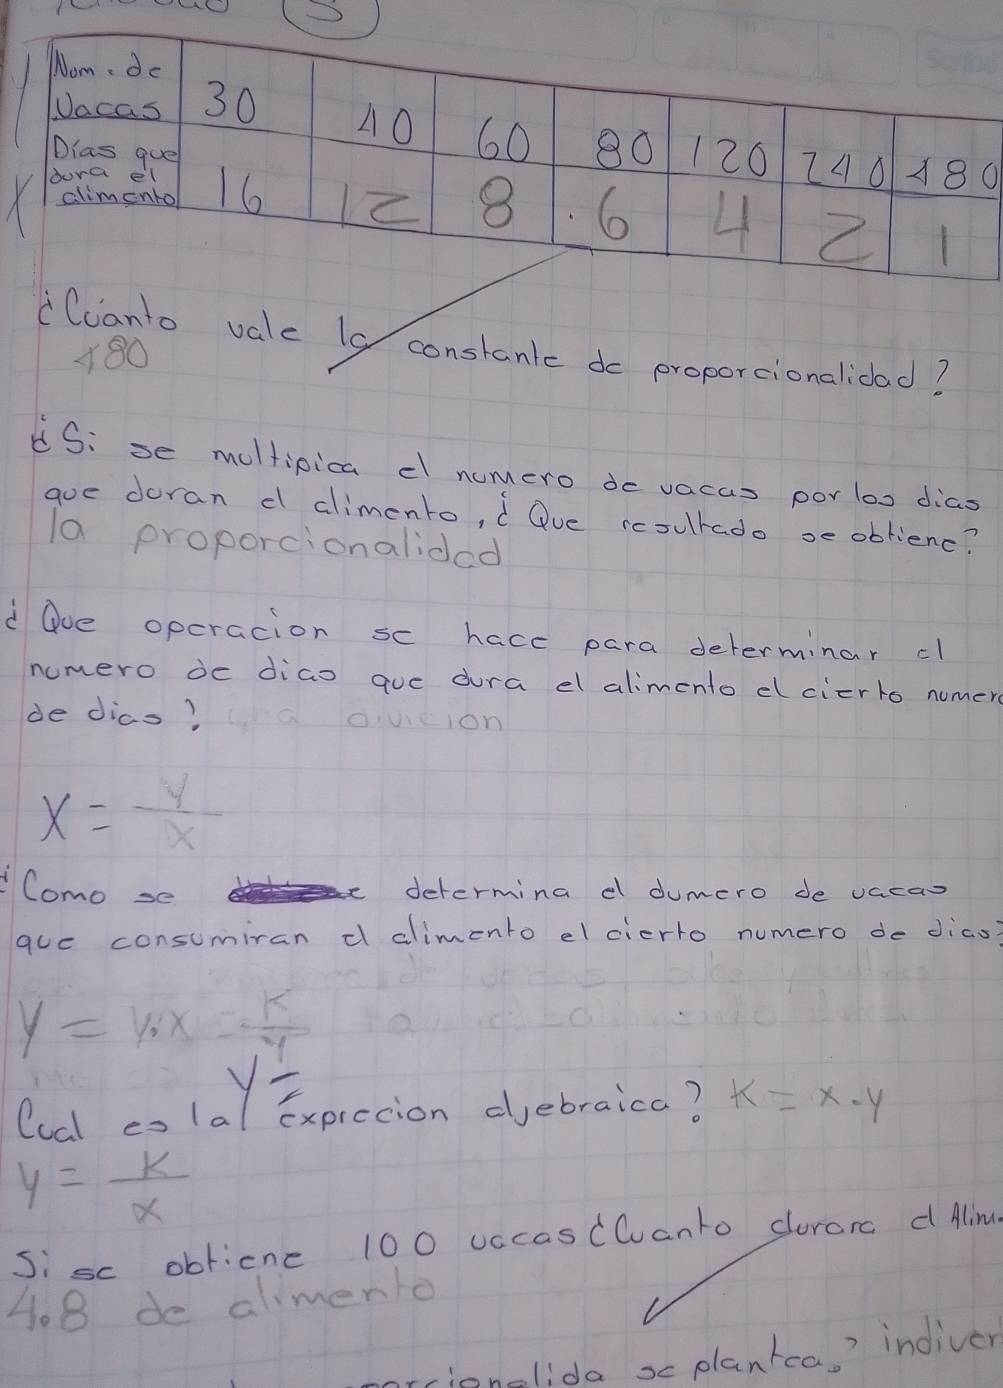 5
Y Nom. de Vacas 30 40 60 80 120 240 480
X Dias que dura el alimento 16 12 8 .6 4 2 1
¿Cuanto vale la constante de proporcionalidad?
480
¿Si se moltipica el numero de vacas por los dias
que doran el alimento, ¿Que resultado se obtiene?
la proporcionalidad
¿Que operacion se hace para determinar el
numero de dias que dura el alimento el cierto numero
de dias? una divicion
X = Y/X
¿Como se determina el dumero de vacas
que consumiran el alimento el cierto numero de dias?
y = y.x = K/Y
y =
Cual es la exprecion aljebraica? K = x.y
y = K/x
Si se obtiene 100 vacas ¿Cuanto durara el Alim.
4.8 de alimento
se plantea? indiver